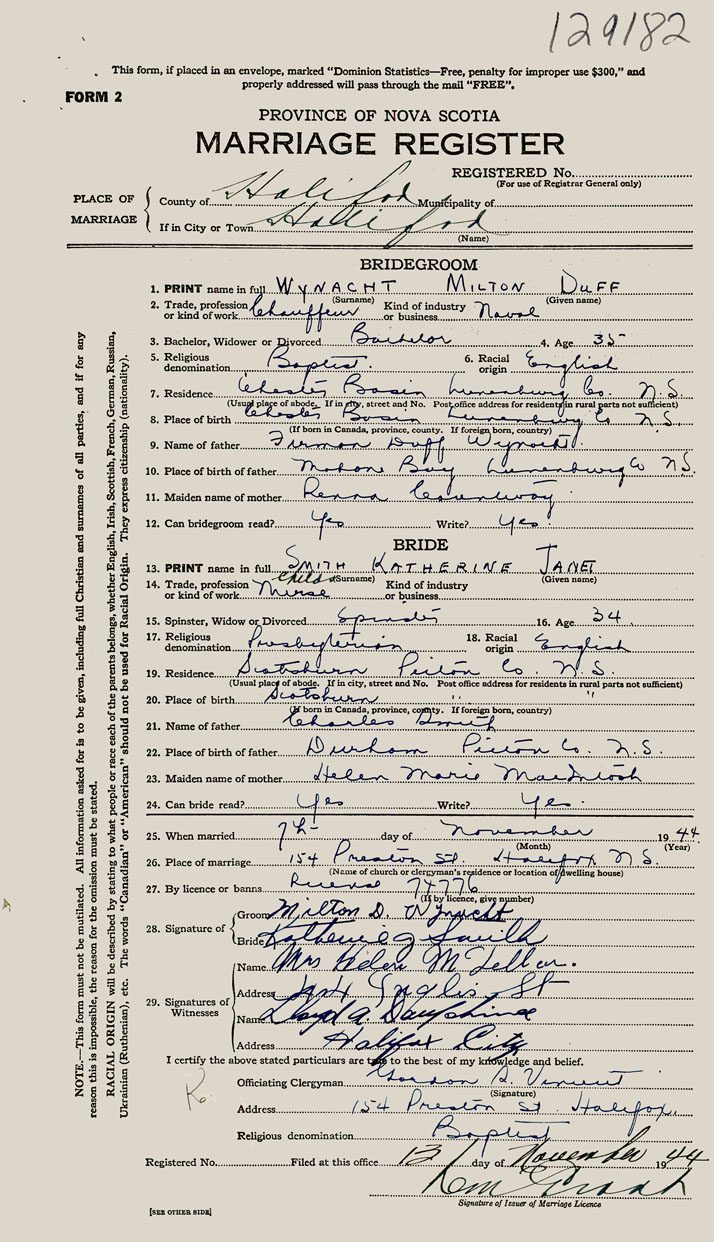 129182
This form, if placed in an envelope, marked "Dominion Statistics—Free, penalty for improper use $300," and
properly addressed will pass through the mail "FREE".
FORM 2
PROVINCE OF NOVA SCOTIA
MARRIAGE REGISTER
REGISTERED No.
(For use of Registrar General only)
PLACE OF MARRIAGE
County of Halifax Municipality of
If in City or Town Halifax
(Name)
BRIDEGROOM
1. PRINT name in full WYNACHT MILTON DUFF
(Surname) (Given name)
2. Trade, profession or kind of work Chauffeur Kind of industry or business Naval
3. Bachelor, Widower or Divorced Bachelor 4. Age 35
5. Religious denomination Baptist. 6. Racial origin English
7. Residence Chester Basin Lunenburg Co. N.S.
(Usual place of abode. If in city, street and No. Post office address for residents in rural parts not sufficient)
8. Place of birth Chester Basin Lunenburg Co N.S.
(If born in Canada, province, county. If foreign born, country)
9. Name of father Duff Wynacht
10. Place of birth of father Mahone Bay Lunenburg Co N.S.
11. Maiden name of mother
12. Can bridegroom read? Yes Write? Yes.
BRIDE
13. PRINT name in full SMITH KATHERINE JANET
(Surname) (Given name)
14. Trade, profession or kind of work Childs Nurse Kind of industry or business
15. Spinster, Widow or Divorced Spinster 16. Age 34
17. Religious denomination Presbyterian 18. Racial origin English
19. Residence Scotsburn Pictou Co. N.S.
(Usual place of abode. If in city, street and No. Post office address for residents in rural parts not sufficient)
20. Place of birth Scotsburn " "
(If born in Canada, province, county. If foreign born, country)
21. Name of father Charles Smith
22. Place of birth of father Durham Pictou Co. N.S.
23. Maiden name of mother Helen Marie MacIntosh
24. Can bride read? Yes Write? Yes.
25. When married 7th day of November 1944
(Month) (Year)
26. Place of marriage 154 Preston St. Halifax N.S.
(Name of church or clergyman's residence or location of dwelling house)
27. By licence or banns 74776
(If by licence, give number)
28. Signature of
Groom Milton D. Wynacht
Bride Katherine J Smith
29. Signatures of Witnesses
Name Mrs Helen M
Address Inglis St
Name Lloyd A. Dauphinee
Address Halifax City
I certify the above stated particulars are true to the best of my knowledge and belief.
Officiating Clergyman Gordon Vincent
(Signature)
Address 154 Preston St Halifax.
Religious denomination Baptist
Registered No. Filed at this office 13 day of November 1944
Signature of Issuer of Marriage Licence
[SEE OTHER SIDE]
NOTE.—This form must not be mutilated. All information asked for is to be given, including full Christian and surnames of all parties, and if for any
reason this is impossible, the reason for the omission must be stated.
RACIAL ORIGIN will be described by stating to what people or race each of the parents belongs, whether English, Irish, Scottish, French, German, Russian,
Ukrainian (Ruthenian), etc. The words "Canadian" or "American" should not be used for Racial Origin. They express citizenship (nationality).